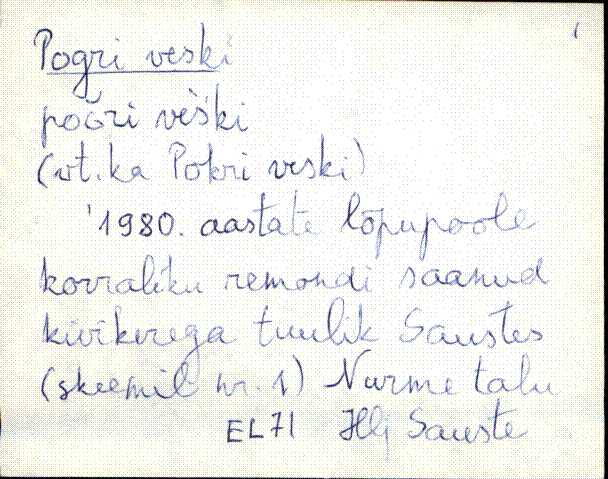 Pogri veski
poG̀ri vèski
(vt. ka Pokri veski)
1980. aastate lõpupoole
korraliku remondi saanud
kivikerega tuulik Saustes
(skeemil nr. 1) Nurme talu
EL71 Hlj Sauste